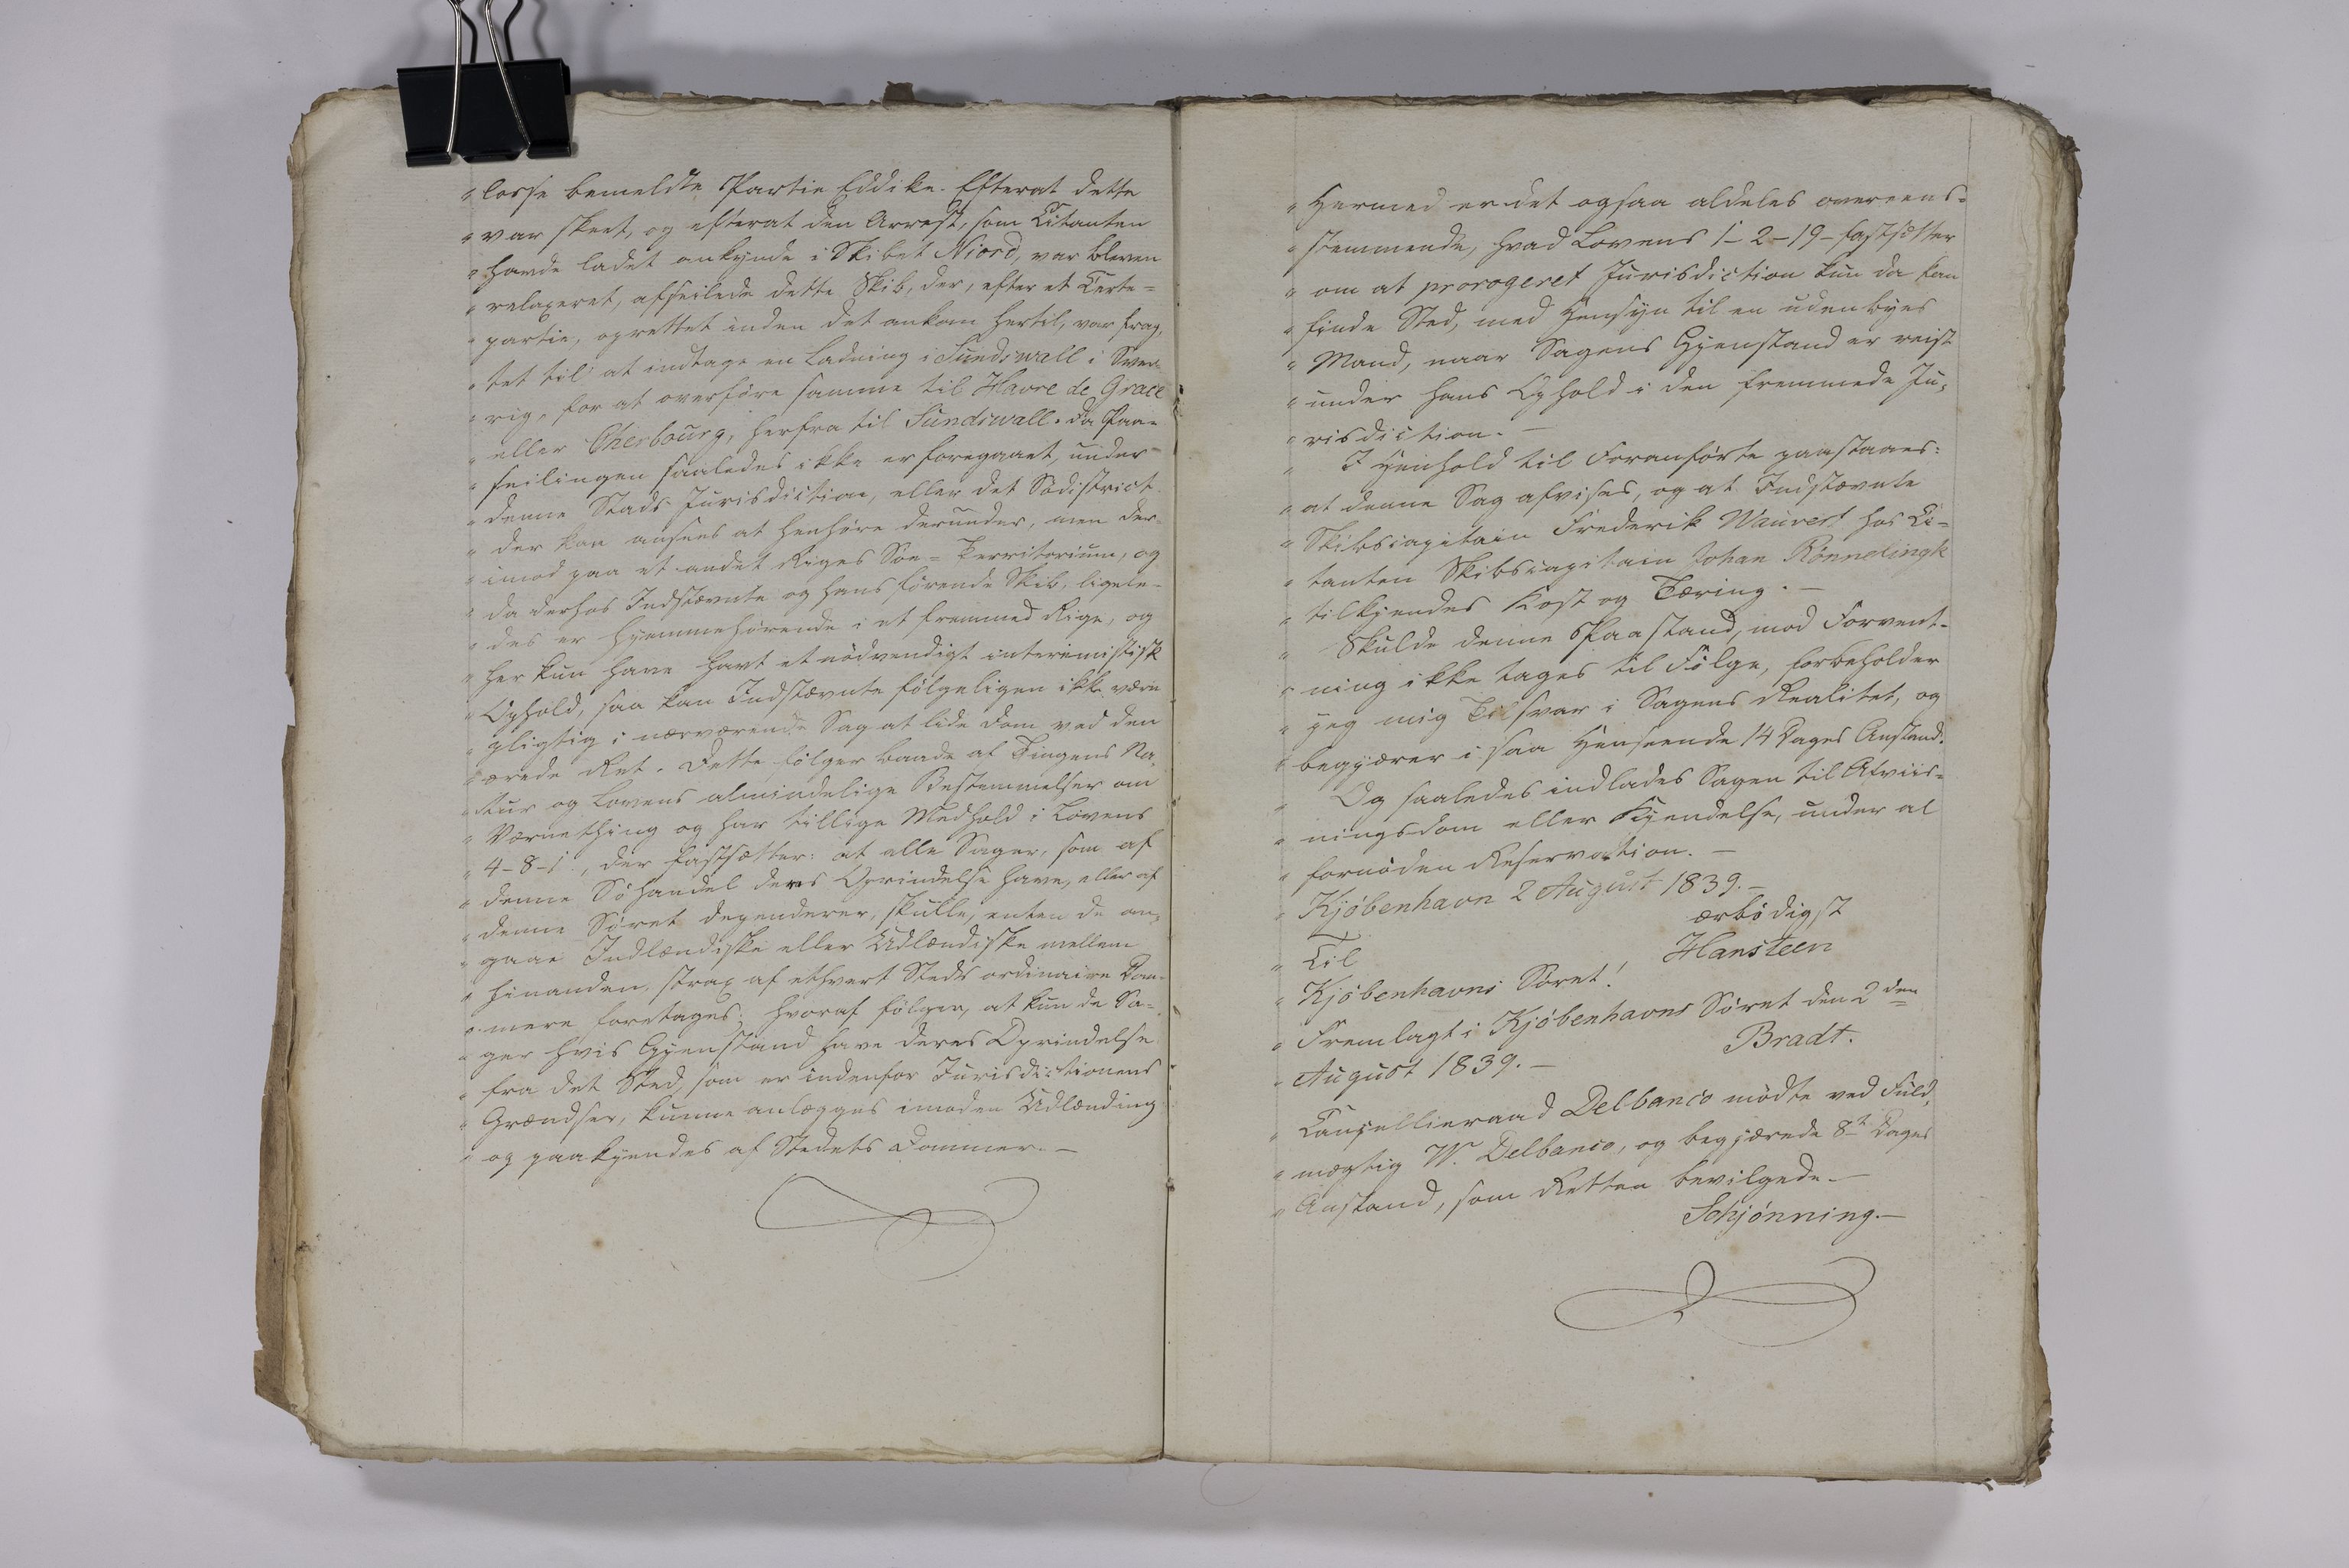 " losse bemeldte Partie Eddike. Efterat dette
" var skeet, og efterat den Arrest, som Citanten
" havde ladet ankynde i Skibet Niord, var bleven
" relaxeret, afseilede dette Skib, der, efter et Certe=
" partie, oprettet inden det ankom hertil, var frag,
" tet til at indtage en Ladning i Sundswall i Sver=
" rig, for at overføre samme til Havre de Grace
" eller Cherbourg, herfra til Sundswall. Da Paa=
" seilingen saaledes ikke er foregaaet, under
" denne Stads Jurisdiction, eller det Södistrict
" der kan ansees at henhøre derunder, men der=
" imod paa et andet Riges Söe=Territorium, og
" da derhos Indstævnte og hans førende Skib, ligele=
" des er hjemmehørende i et fremmed Rige, og
" her kun have havt et nødvendigt interimistisk
" Ophold, saa kan Indstævnte følgeligen ikke være
" pligtig i nærværende Sag at lide Dom ved den
" ærede Ret. Dette følger baade af Tingens Na,
" tur og Lovens almindelige Bestemmelser om
" Værnething og har tillige Medhold i Lovens
" 4-8-1, der fastsætter: at alle Sager, som af
" denne Söhandel deres Oprindelse have, eller af
" denne Söret dependerer, skulle, enten de an,
" gaae Indlændiske eller Udlændiske mellem
" hinanden, strax af ethvert Steds ordinaire Dom=
" mere foretages; hvoraf følger, at kun de Sa=
" ger hvis Gjenstand have deres Oprindelse
" fra det Sted, som er indenfor Jurisdictionens
" Grændser, kunne anlægges imod en Udlænding
" og paakjendes af Stedets Dommer. —
" Hermed er det ogsaa aldeles overeens=
" stemmende, hvad Lovens 1-2-19- fastsætter
" om at prorogeret Jurisdiction kun da kan
" finde Sted, med Hensyn til en udenbyes
" Mand, naar Sagens Gjenstand er reist
" under hans Ophold i den fremmede Ju,
" risdiction. —
" I Henhold til Foranførte paastaaes:
" at denne Sag afvises, og at Indstævnte
" Skibscapitain Frederik Wauvert hos Ci=
" tanten Skibscapitain Johan Rönnelingk
" tilkjendes Kost og Tæring. —
" Skulde denne Paastand, mod Forvent=
" ning ikke tages til Følge, forbeholder
" jeg mig Tilsvar i Sagens Realitet, og
" begjærer i saa Henseende 14 Dages Anstand.
" Og saaledes indlades Sagen til Afviis=
" ningsdom eller Kjendelse, under al
" fornøden Reservation. —
" Kjöbenhavn 2 August 1839. —
ærbödigst
" Til Hansteen
" Kjöbenhavns Söret!
" Fremlagt i Kjöbenhavns Söret den 2den
" August 1839. — Bradt.
" Cancellieraad Delbanco mödte ved Fuld,
" mægtig W. Delbanco, og begjærede 8te Dages
" Anstand, som Retten bevilgede. —
Schjönning. —